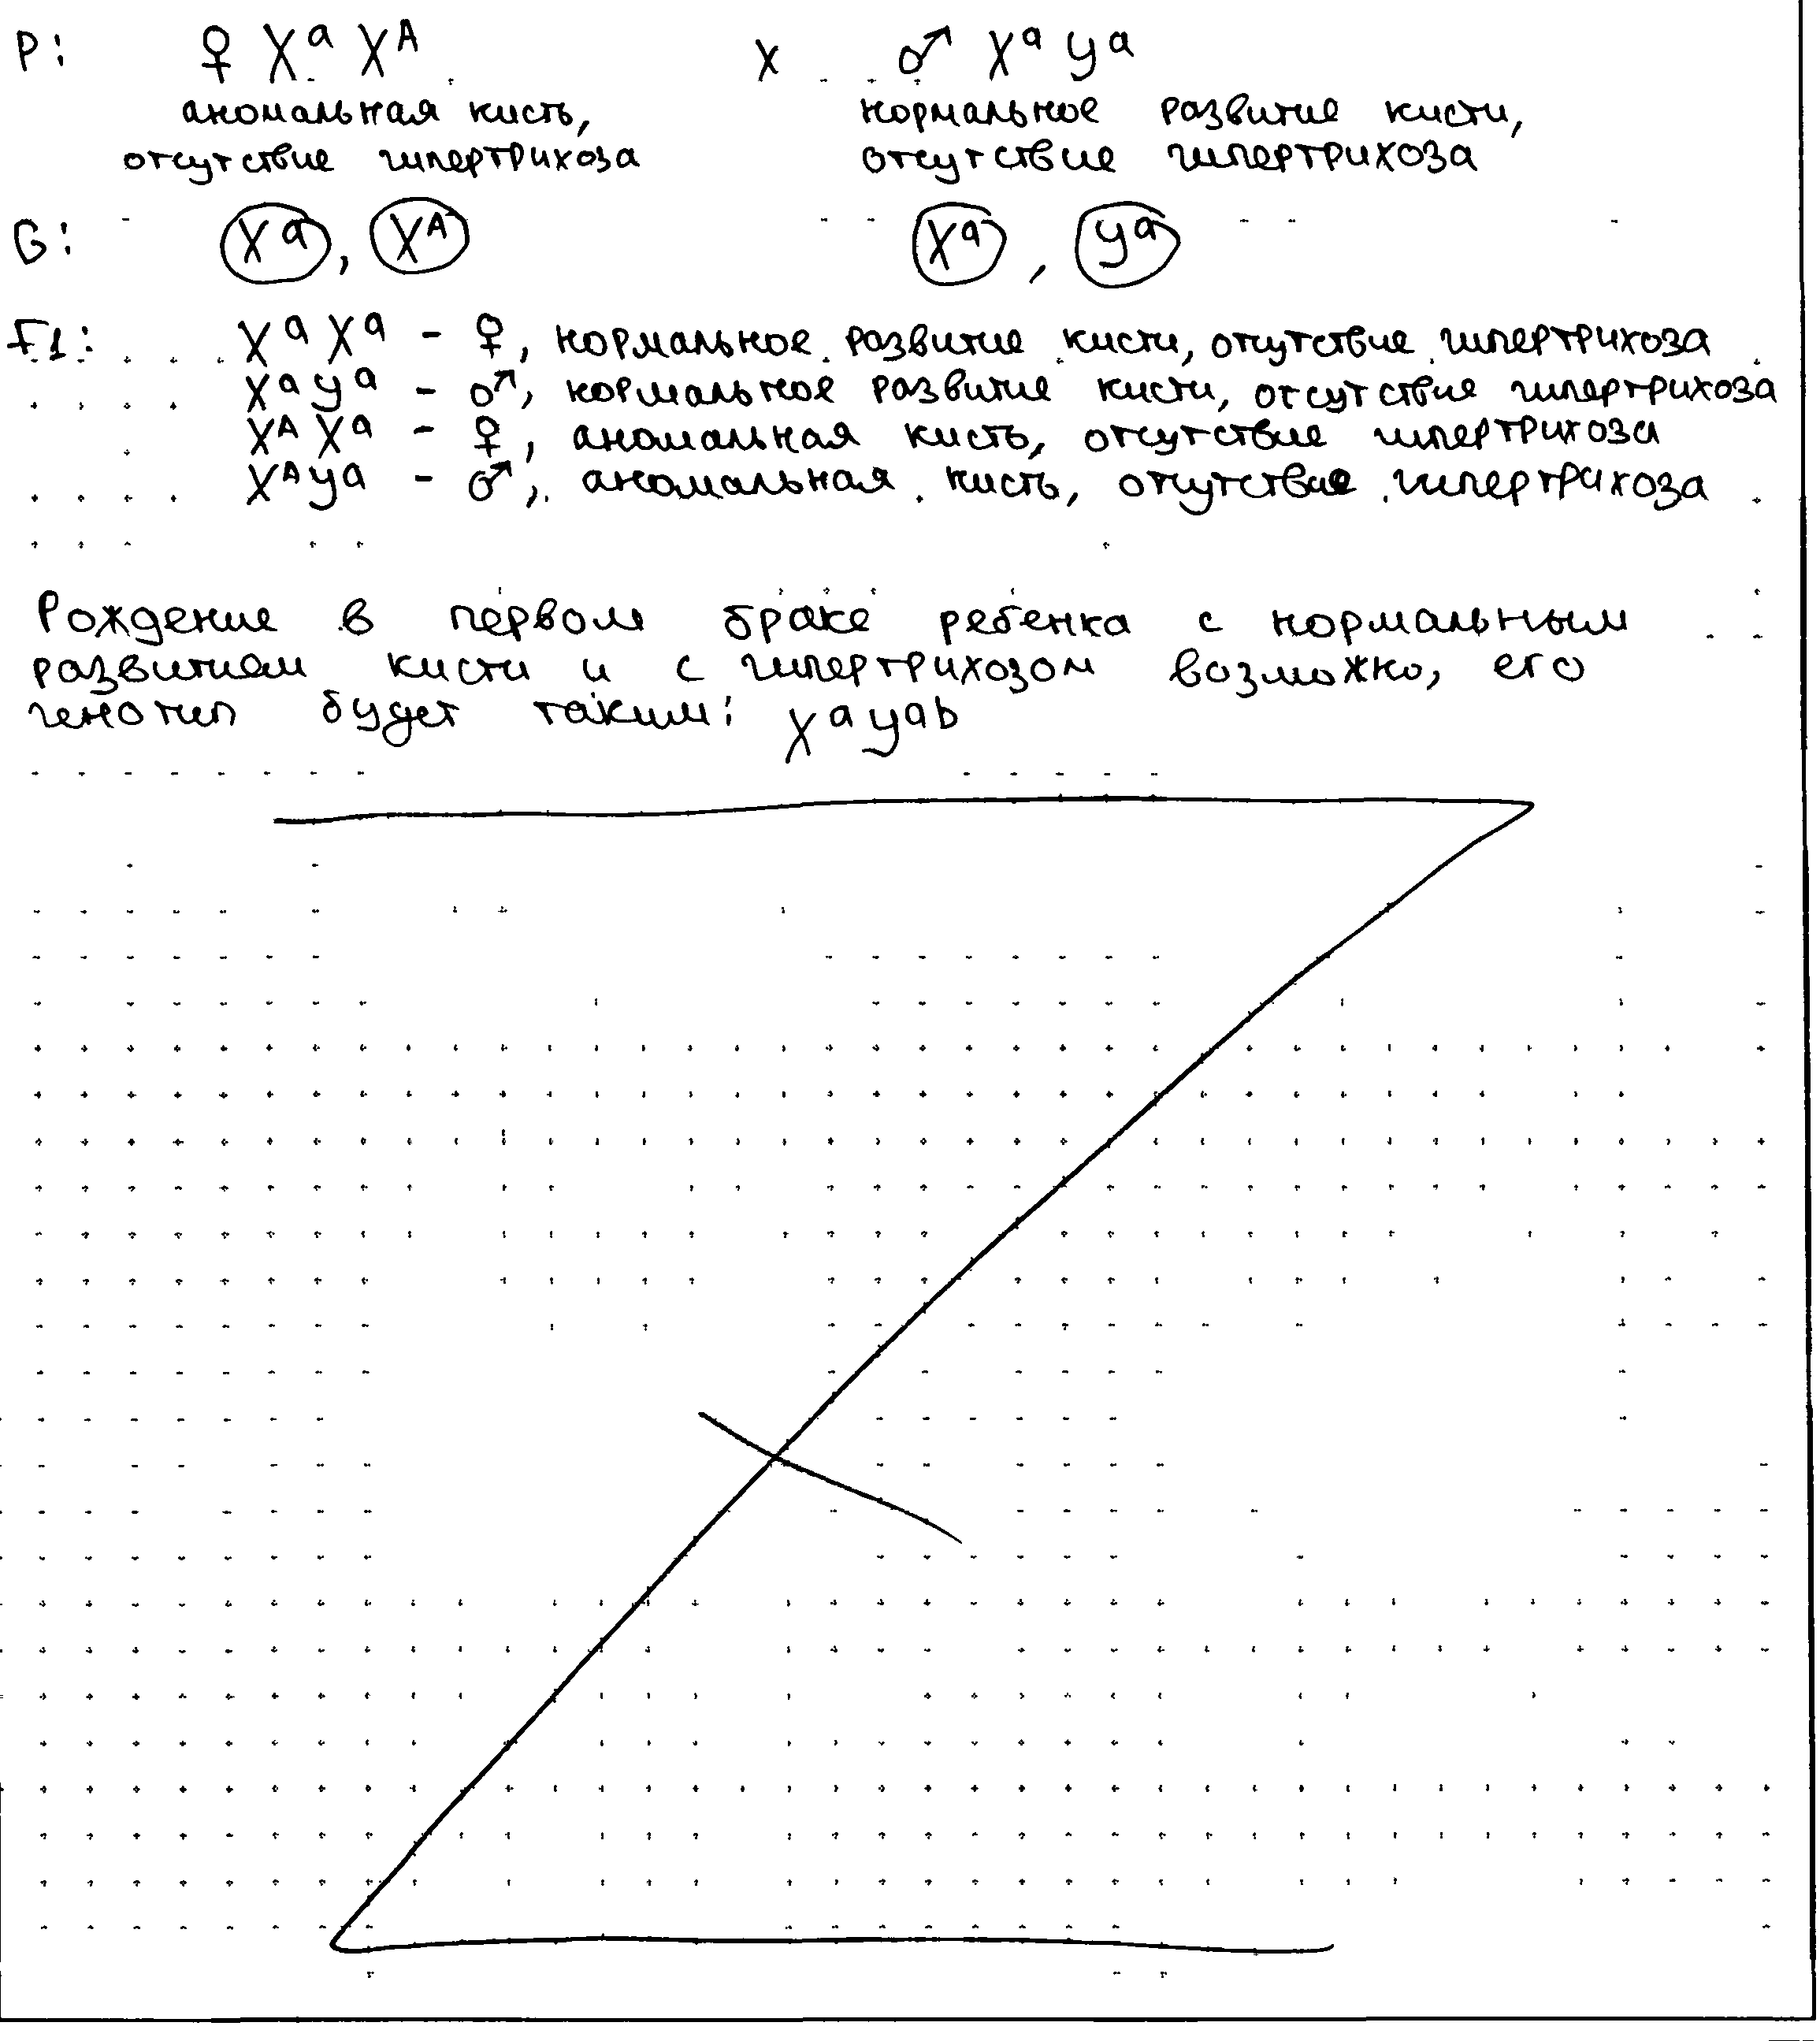 P: ♀ XᵃXᴬ x ♂ Xᵃyᵃ
аномальная кисть, нормальное развитие кисти,
отсутствие гипертрихоза отсутствие гипертрихоза
G: Xᵃ, Xᴬ Xᵃ, yᵃ
F1: XᵃXᵃ - ♀, нормальное развитие кисти, отсутствие гипертрихоза
Xᵃyᵃ - ♂, нормальное развитие кисти, отсутствие гипертрихоза
XᴬXᵃ - ♀, аномальная кисть, отсутствие гипертрихоза
Xᴬyᵃ - ♂, аномальная кисть, отсутствие гипертрихоза
Рождение в первом браке ребенка с нормальным
развитием кисти и с гипертрихозом возможно, его
генотип будет таким: Xᵃyᵃᵇ